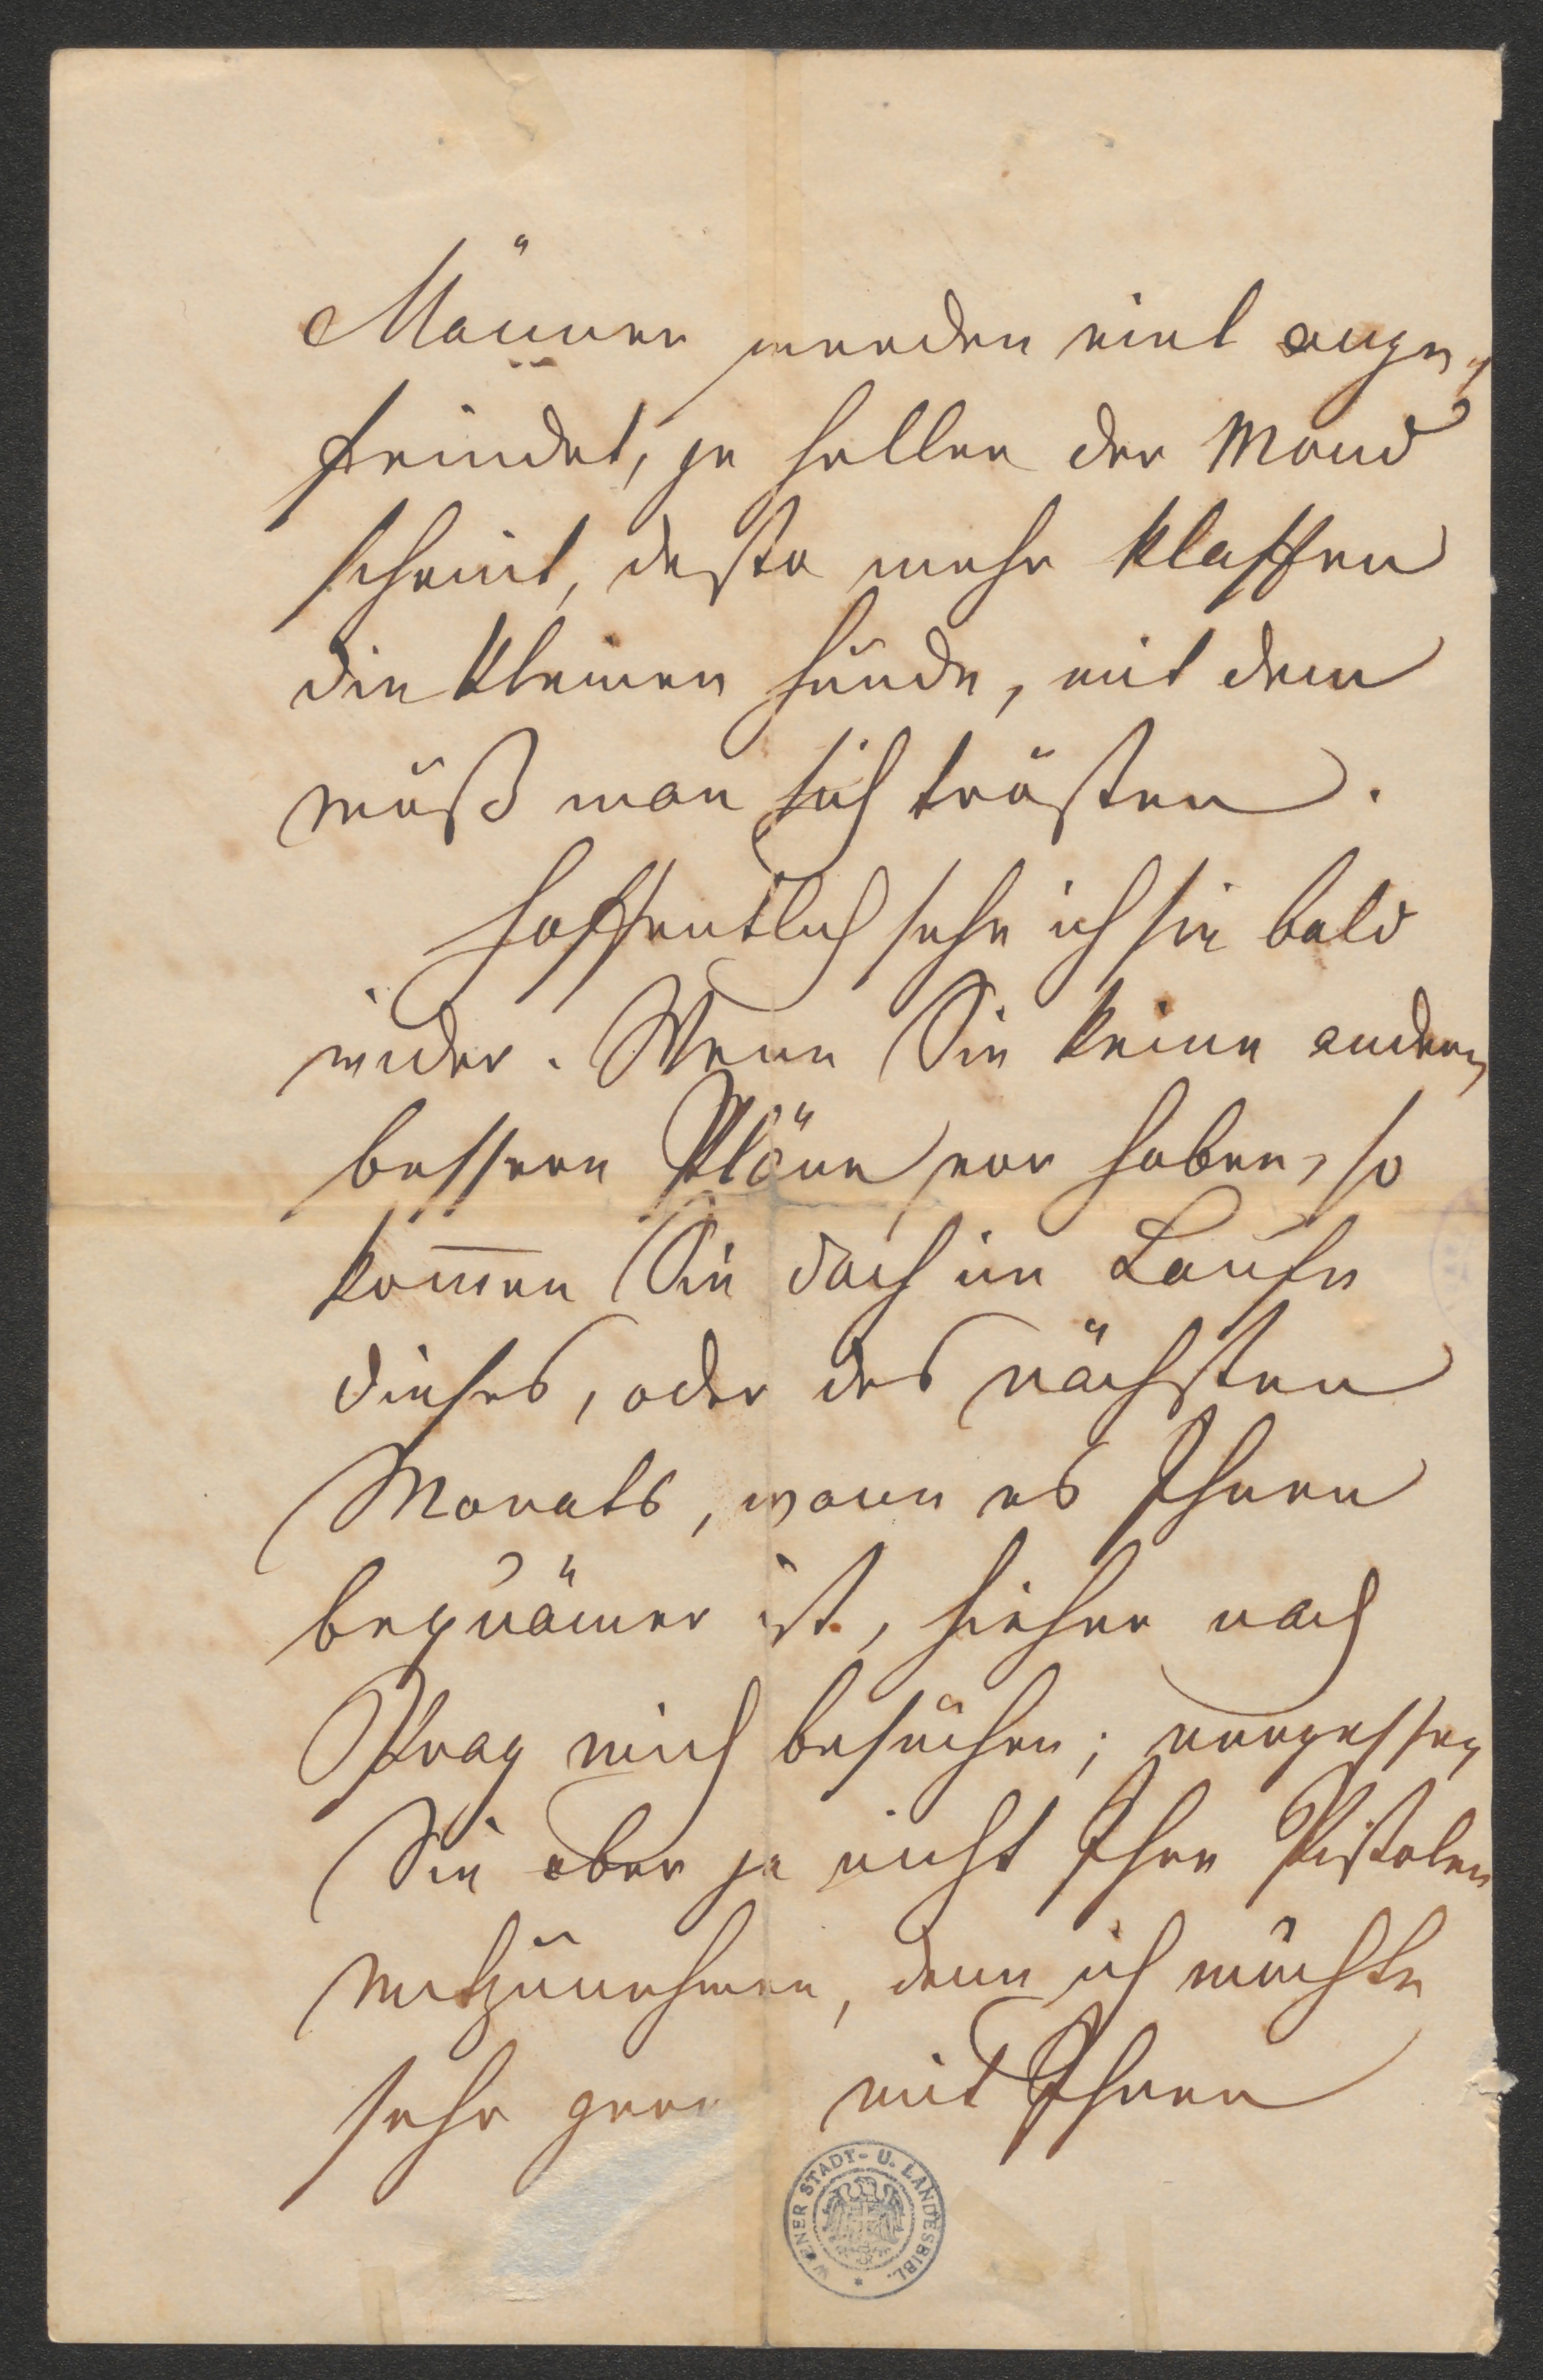 Männer werden viel ange-
feindet, je heller der Mond
scheint, desto mehr klaffen
die kleinen Hunde, mit dem
muß man sich trösten.
Hoffentlich sehe ich sie bald
wider. Wenn Sie keine andern
bessern Pläne vor haben, so
kom̅en Sie doch im Laufe
dieses, oder des nächsten
Monats, wann es Ihnen
bequämer ist, hieher nach
Prag mich besuchen; vergessen
Sie aber ja nicht Ihre Pistolen
mitzunehmen, denn ich möchte
sehr gern mit Ihnen
WIENER STADT- U. LANDESBIBL.